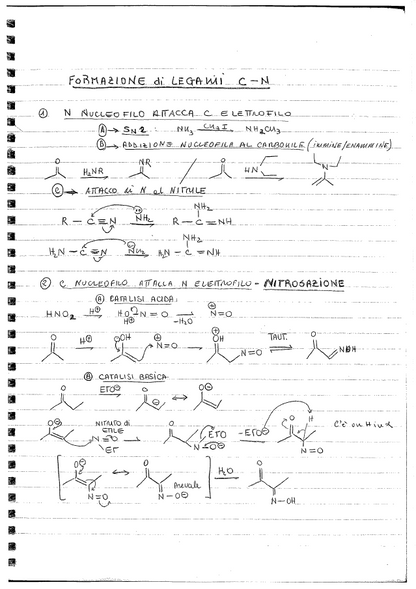 FORMAZIONE di LEGAMI C-N
① N NUCLEOFILO ATTACCA C ELETTROFILO
Ⓐ → SN2: NH₃ CH₃I → NH₂CH₃
Ⓑ → ADDIZIONE NUCLEOFILA AL CARBONILE (IMMINE/ENAMMINE)
O H₂NR → NR / O HN → N
Ⓒ → ATTACCO di N al NITRILE
NH₂
R - C ≡ N NH₂ → R - C = NH
NH₂
H₂N - C ≡ N NH₂ → H₂N - C = NH
② C NUCLEOFILO ATTACCA N ELETTROFILO - NITROSAZIONE
Ⓐ CATALISI ACIDA:
HNO₂ H⊕ → HO N = O -H₂O → ⊕N=O
O H⊕ → OH ⊕N=O → OH N=O TAUT. O NOH
Ⓑ CATALISI BASICA
O EtO⊖ → O ⊖ ↔ O⊖
NITRITO di
O⊖ N=O → O EtO -EtO⊖ → O H C'è un H in α
N-O⊖ N=O
O⊖ ↔ O prevale H₂O → O
N=O N-O⊖ N-OH